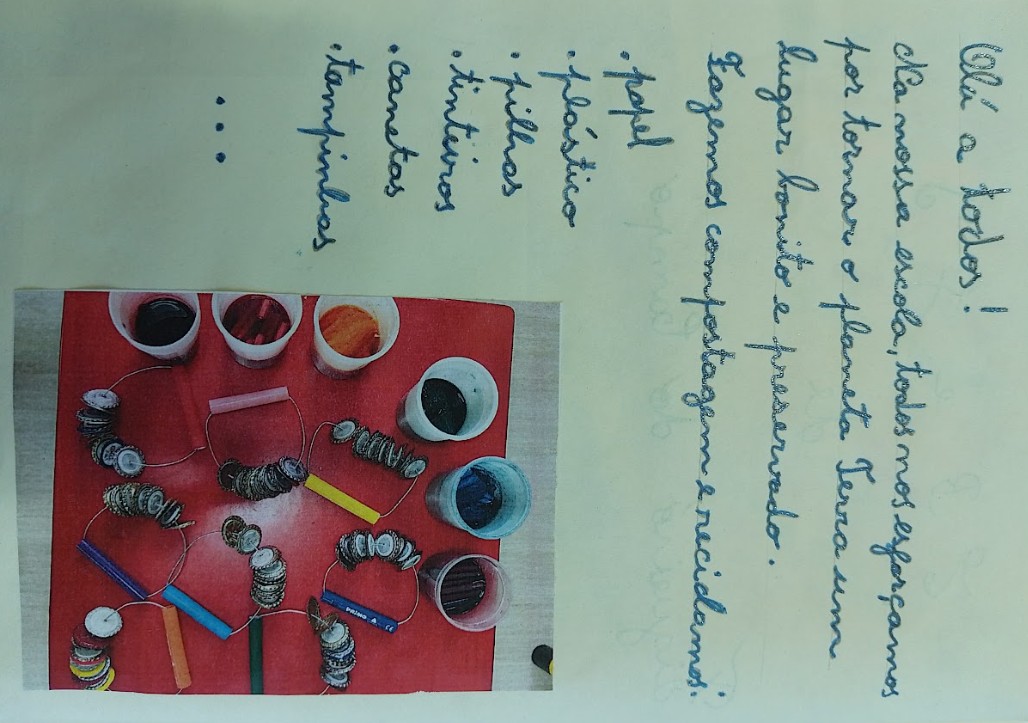 Olá a todos!
Na nossa escola, todos nos esforçamos
por tornar o planeta Terra um
lugar bonito e preservado.
Fazemos compostagem e reciclamos:
• papel
• plástico
• pilhas
• tinteiros
• canetas
• tampinhas
• • •
PRIMO A CE